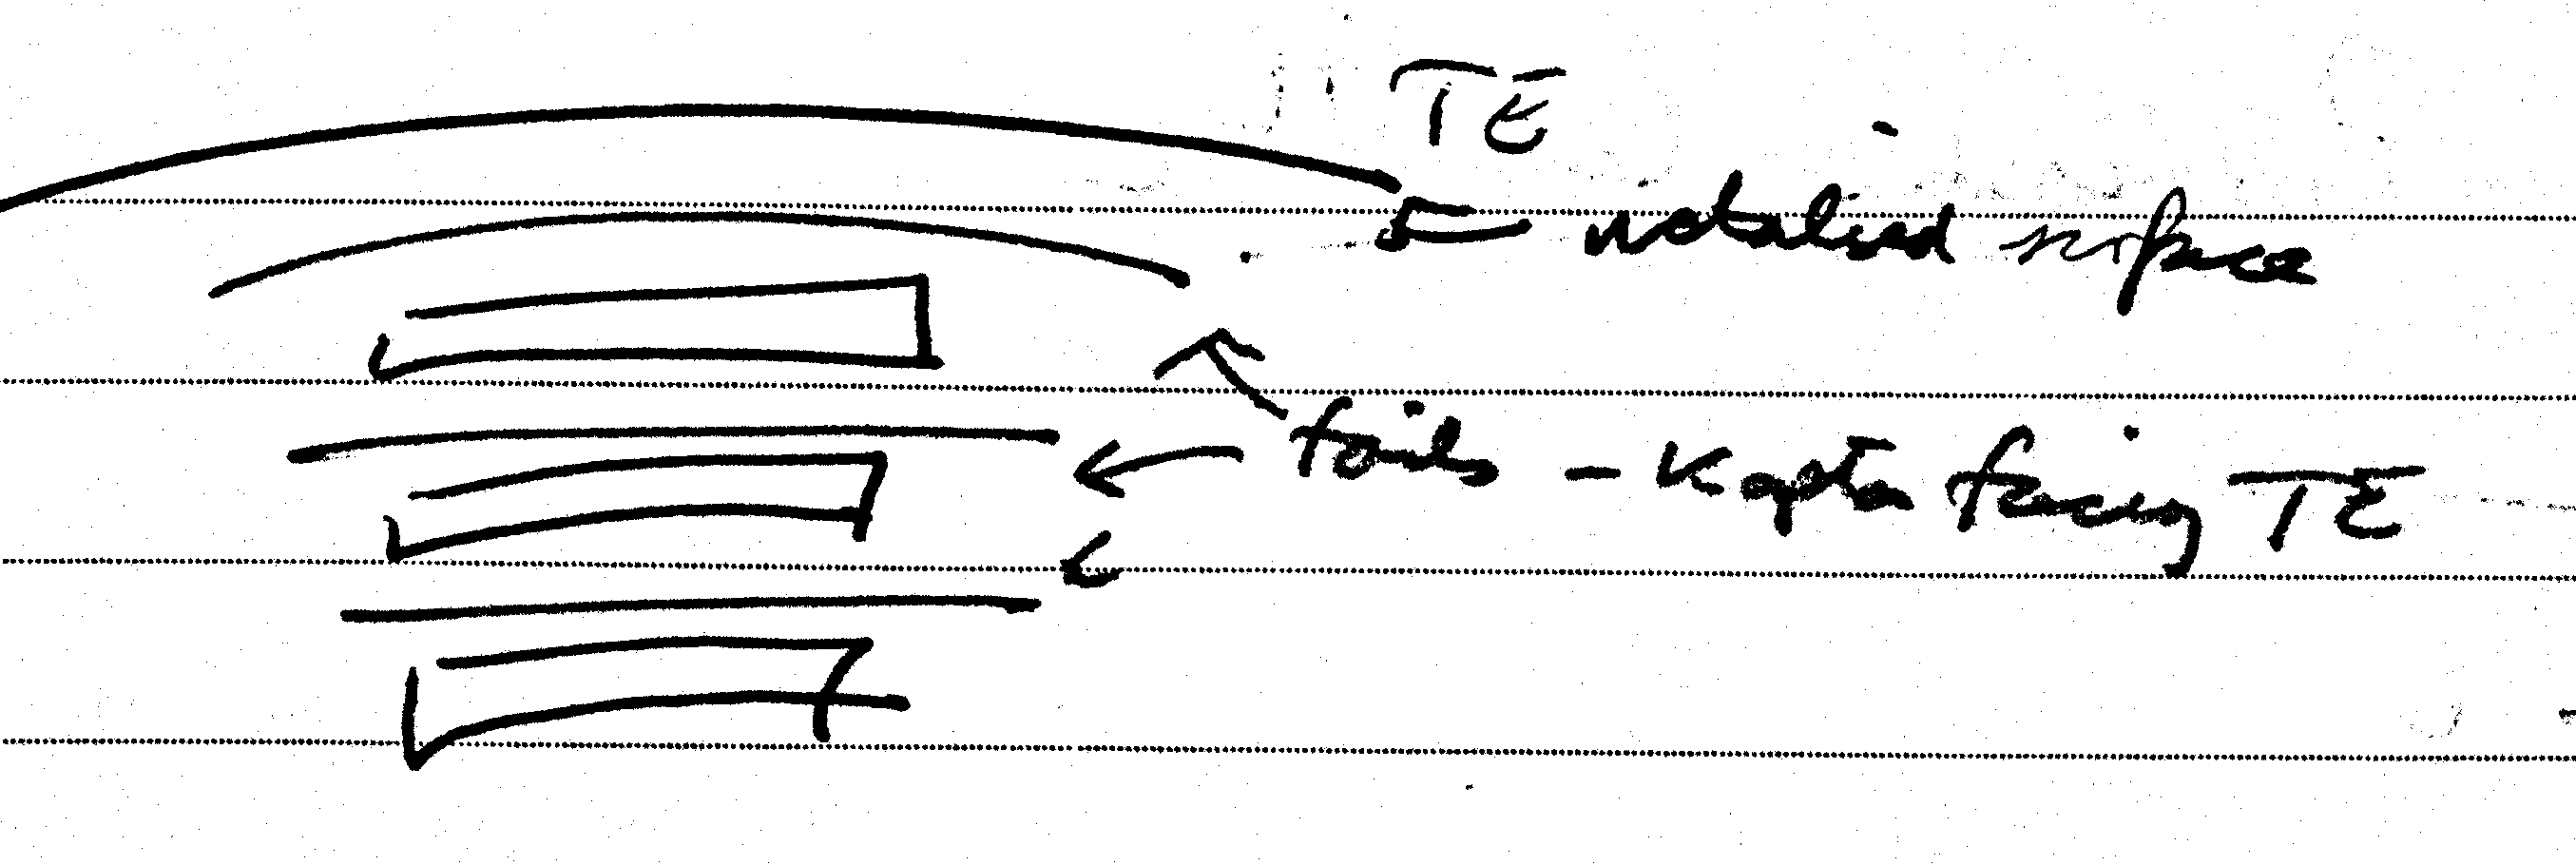 TE
metalised surface
foils - Kapton facing TE